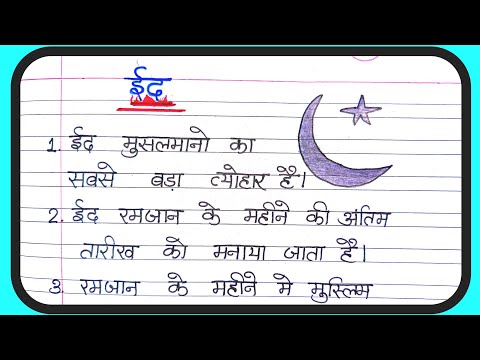 ईद
1. ईद मुसलमानो का
सबसे बड़ा त्योहार है।
2. ईद रमजान के महीने की अंतिम
तारीख को मनाया जाता है।
3. रमजान के महीने मे मुस्लिम